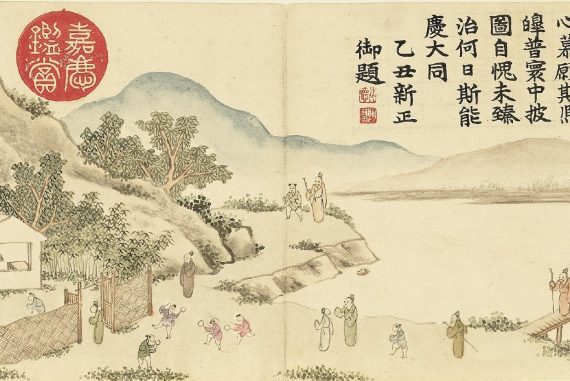 心慕願其
皥普寰中披
圖自愧未臻
治何日斯能
慶大同
乙丑新正
御題
嘉慶
鑑賞